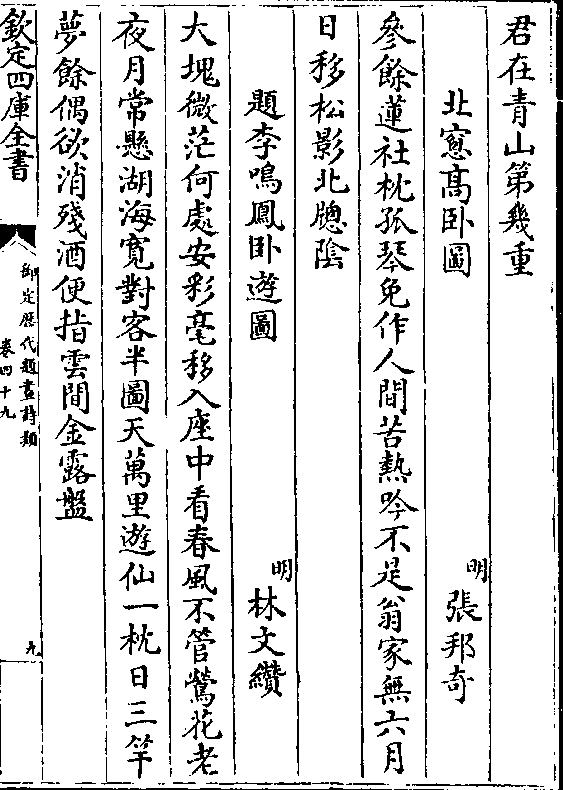 君在青山第幾重
北窻髙卧圖
明 張邦奇
參餘蓮社枕孤琴免作人間苦熱吟不足翁家無六月
日移松影北牕陰
題李鳴鳳卧遊圖
明 林文纘
大塊微茫何處安彩毫移入座中看春風不管鶯花老
夜月常懸湖海寛對客半圖天萬里遊仙一枕日三竿
夢餘偶欲消殘酒便指雲間金露盤
欽定四庫全書
御定歴代題畫詩類
卷四十九
九